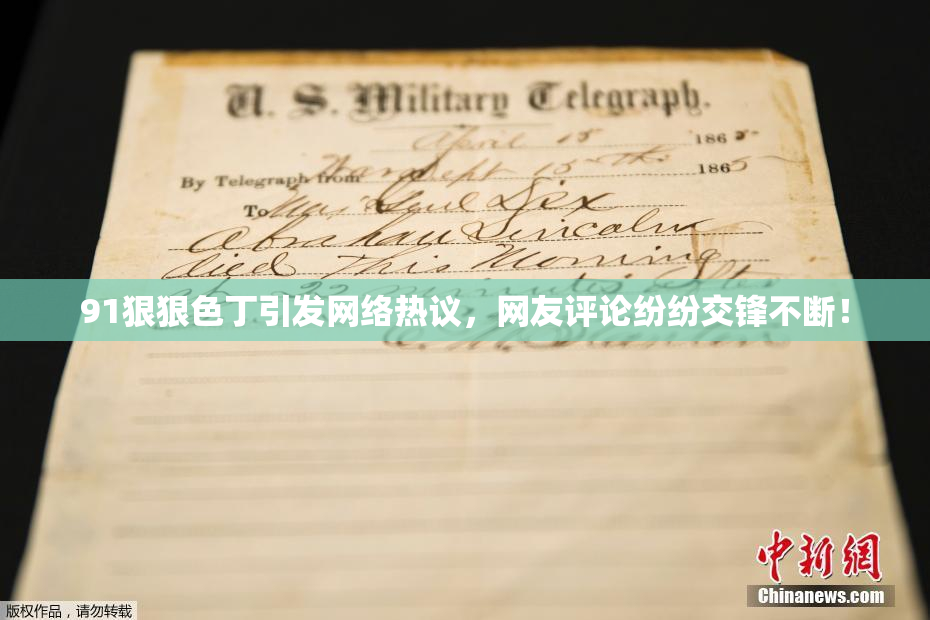 U. S. Military Telegraph.
April 15 1865
By Telegraph from War Dept 15th 1865
To Maj Genl Dix
Abraham Lincoln
died This Morning
at 22 minutes after
91狠狠色丁引发网络热议，网友评论纷纷交锋不断！
E. M. Stanton
中新网
Chinanews.com
版权作品，请勿转载